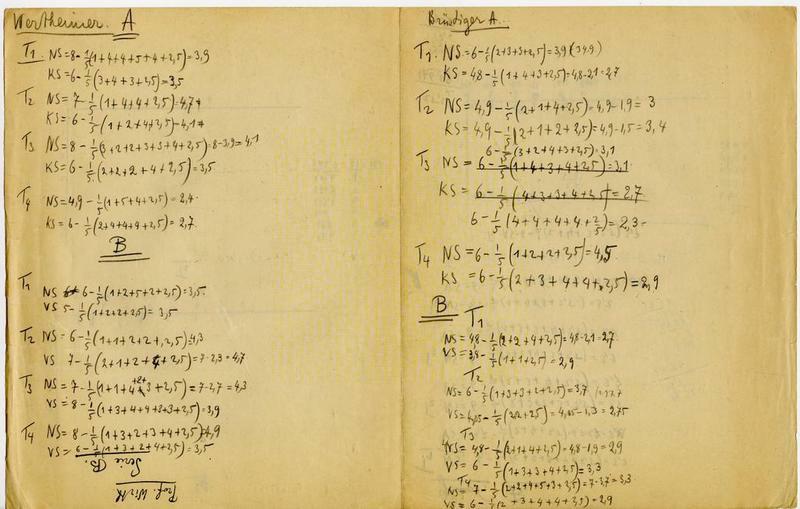 Wertheimer. A
T1 NS=8-1/5(1+4+4+5+4+2,5)=3,9
KS=6-1/5(3+4+3+2,5)=3,5
T2 NS=7-1/5(1+4+4+2,5)=4,7
KS=6-1/5(1+2+4+2,5)=4,1
T3 NS=8-1/5(3+2+2+3+3+4+2,5)=8-3,9=4,1
KS=6-1/5(2+2+2+4+2,5)=3,5
T4 NS=4,9-1/5(1+5+4+2,5)=2,4
KS=6-1/5(2+4+4+4+2,5)=2,7
B
T1 NS 6-1/5(1+2+5+2+2,5)=3,5
VS 5-1/5(1+2+2+2,5)=3,5
T2 NS=6-1/5(1+1+2+2+2,5)=4,3
VS 7-1/5(2+1+2+4+2,5)=7-2,3=4,7
T3 NS=7-1/5(1+1+4+2+3+2,5)=7-2,7=4,3
VS=8-1/5(1+3+4+4+3+3+2,5)=3,9
T4 NS=8-1/5(1+3+2+3+4+2,5)=4,9
VS=6-1/5(1+3+2+4+2,5)=3,5
Serie (B.
Prof. Wirth
Brüstiger A..
T1. NS=6-1/5(2+3+3+2,5)=3,9 (3,9)
KS=4,8-1/5(1+4+3+2,5)=4,8-2,1=2,7
T2 NS=4,9-1/5(2+1+4+2,5)=4,9-1,9=3
KS=4,9-1/5(2+1+2+2,5)=4,9-1,5=3,4
6-1/5(3+2+4+3+2,5)=3,1
T3 NS=6-1/5(1+4+3+4+2,5)=3,1
KS=6-1/5(4+3+3+4+2,5)=2,7
6-1/5(4+4+4+4+2/5)=2,3-
T4 NS=6-1/5(1+2+2+2,5)=4,5
KS=6-1/5(2+3+4+4+2,5)=2,9
B T1
NS=4,8-1/5(2+2+4+2,5)=4,8-2,1=2,7
VS=3,8-1/5(1+1+2,5)=2,9
T2
NS=6-1/5(1+3+3+2+2,5)=3,7
VS=4,05-1/5(2+2+2,5)=4,05-1,3=2,75
T3
NS=4,8-1/5(2+1+4+2,5)=4,8-1,9=2,9
VS=6-1/5(1+3+3+4+2,5)=3,3
T4
NS=7-1/5(2+2+4+5+3+2,5)=7-3,7=3,3
VS=6-1/5(2+3+4+4+2,5)=2,9